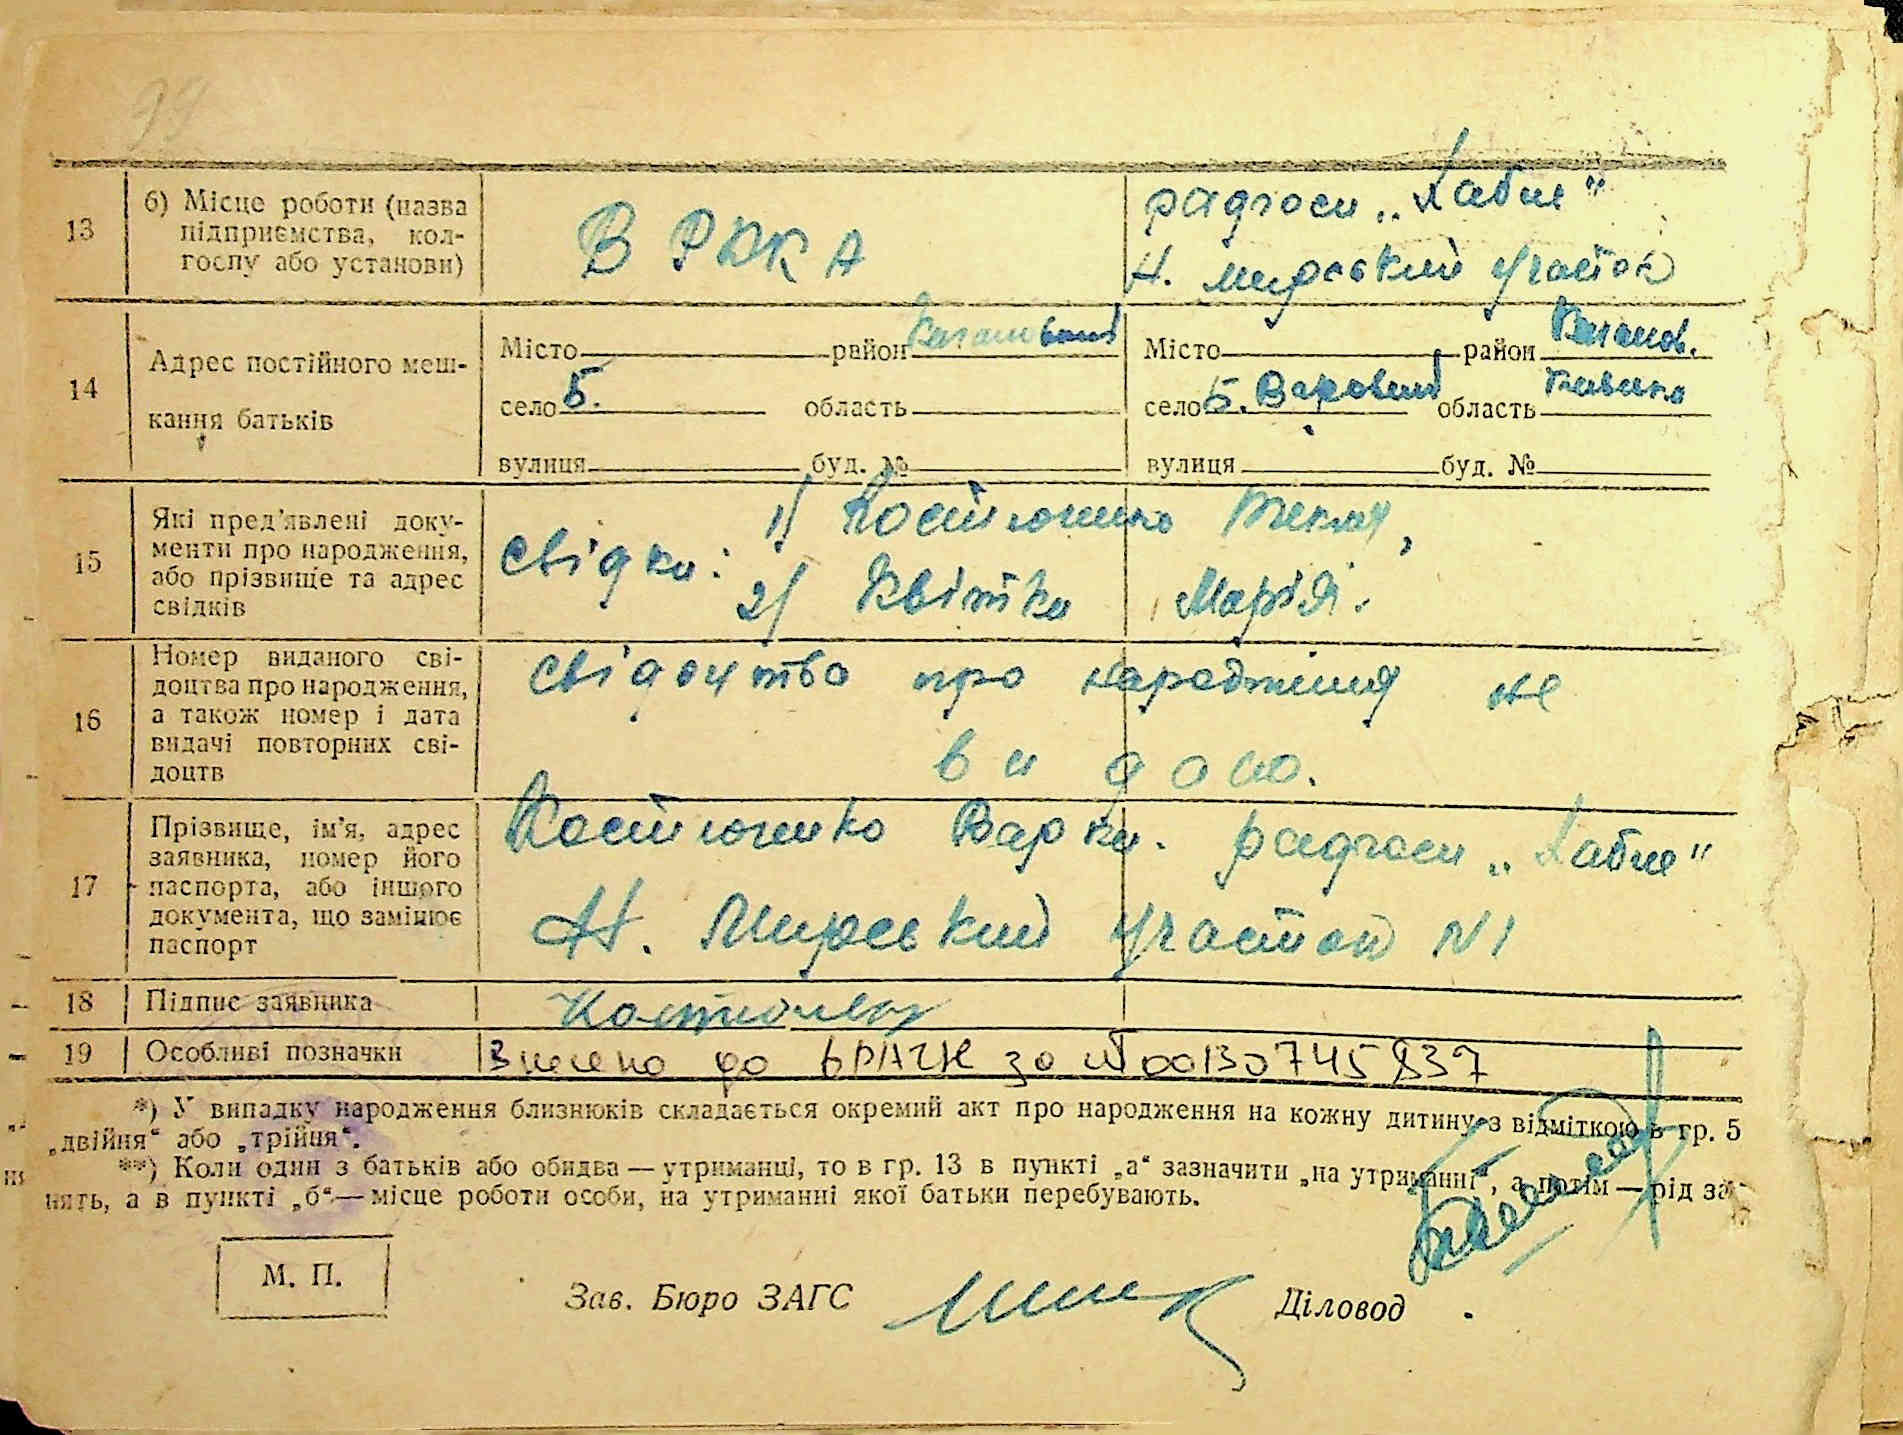 13
б) Місце роботи (назва
підприємства, кол-
госпу або установи)
В РККА
радгосп „Хабне"
Н. мирський участок
14
Адрес постійного меш-
кання батьків
Місто район Кагановський
село Б. область
вулиця буд. №
Місто район Каганов.
село Б. Варовськ область Київська
вулиця буд. №
15
Які пред'явлені доку-
менти про народження,
або прізвище та адрес
свідків
Свідки: 1/ Костюченко Текля,
2/ Квітка Марія.
16
Номер виданого сві-
доцтва про народження,
а також номер і дата
видачі повторних сві-
доцтв
свідоцтво про народження не
видано.
17
Прізвище, ім'я, адрес
заявника, номер його
паспорта, або іншого
документа, що замінює
паспорт
Костюченко Варка. радгосп „Хабне"
Н. Мирський участок N1
18
Підпис заявника
19
Особливі позначки
Внесено до ДРАЦС за №00130745837
*) У випадку народження близнюків складається окремий акт про народження на кожну дитину з відміткою в гр. 5
„двійня“ або „трійня“.
**) Коли один з батьків або обидва — утриманці, то в гр. 13 в пункті „а“ зазначити „на утриманні“, а потім — рід за-
нять, а в пункті „б“ — місце роботи особи, на утриманні якої батьки перебувають.
М. П.
Зав. Бюро ЗАГС
Діловод